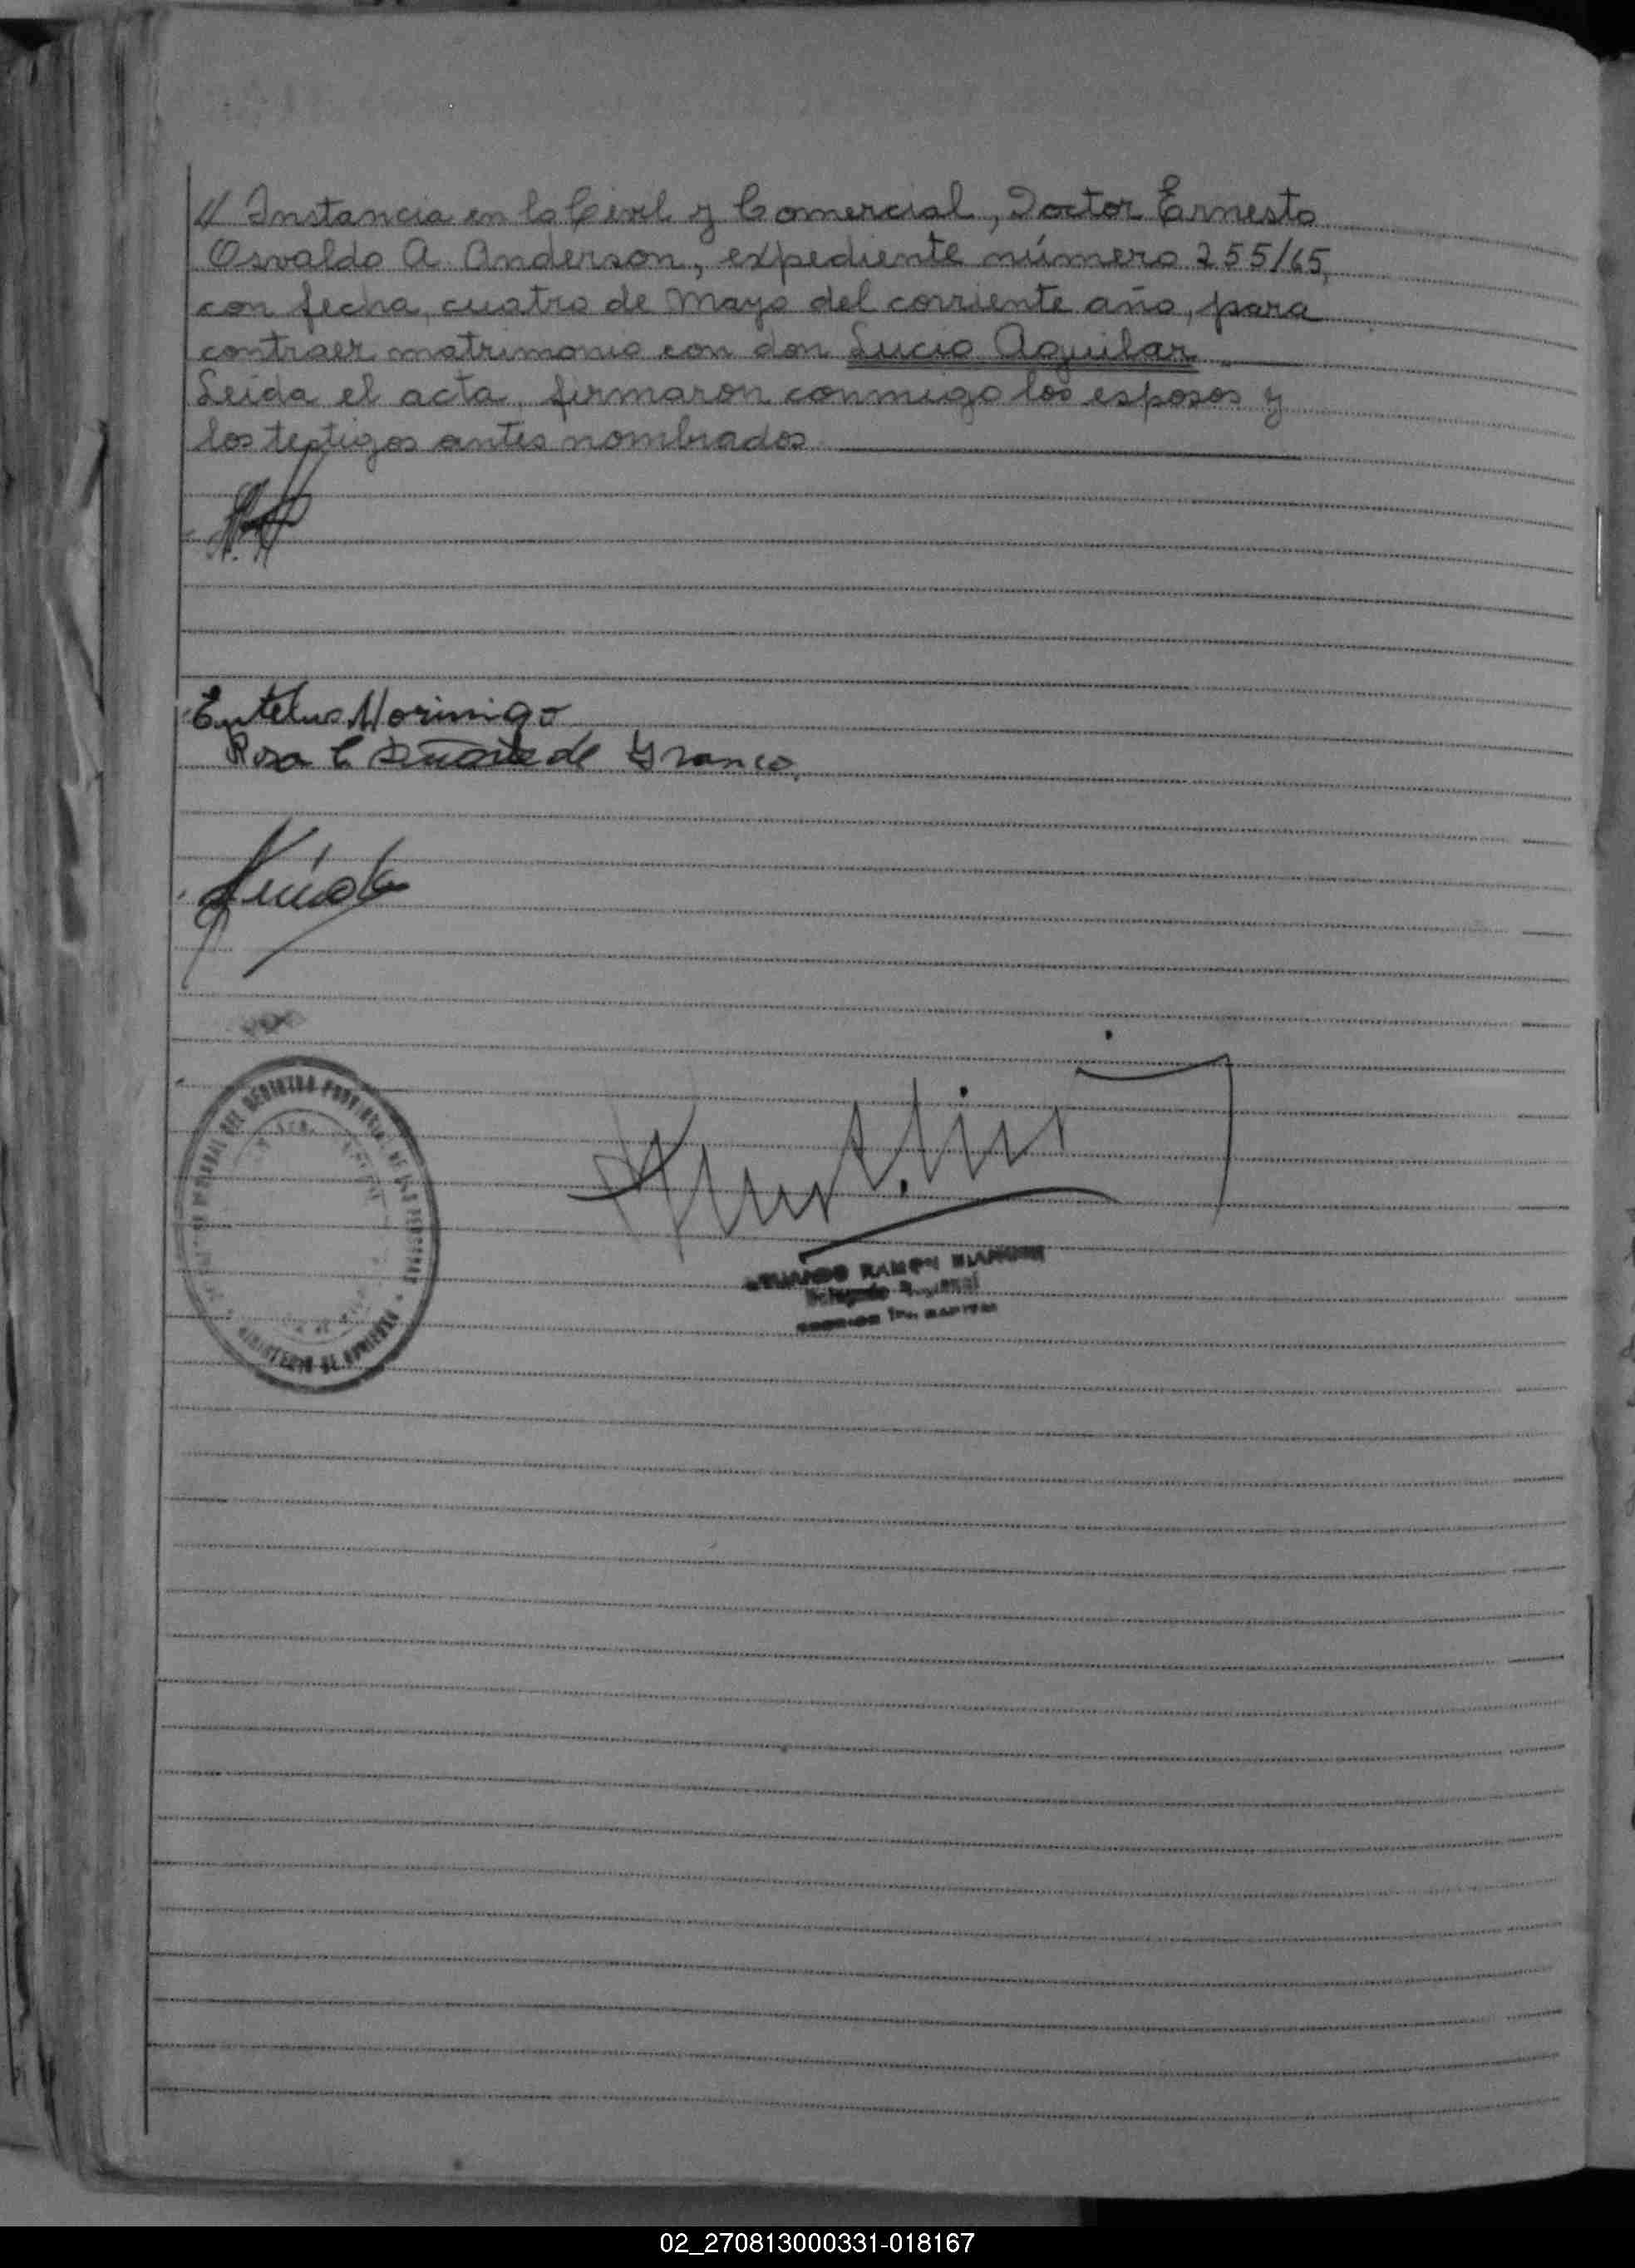 // Instancia en lo Civil y Comercial, Doctor Ernesto
Osvaldo A. Anderson, expediente número 255/65,
con fecha, cuatro de Mayo del corriente año, para
contraer matrimonio con don Lucio Aguilar
Leida el acta, firmaron conmigo los esposos y
los testigos antes nombrados
Morinigo
Rosa C de Franco
REGISTRO PROVINCIAL DE LAS PERSONAS
MINISTERIO DE GOBIERNO
RAMON
02_270813000331-018167